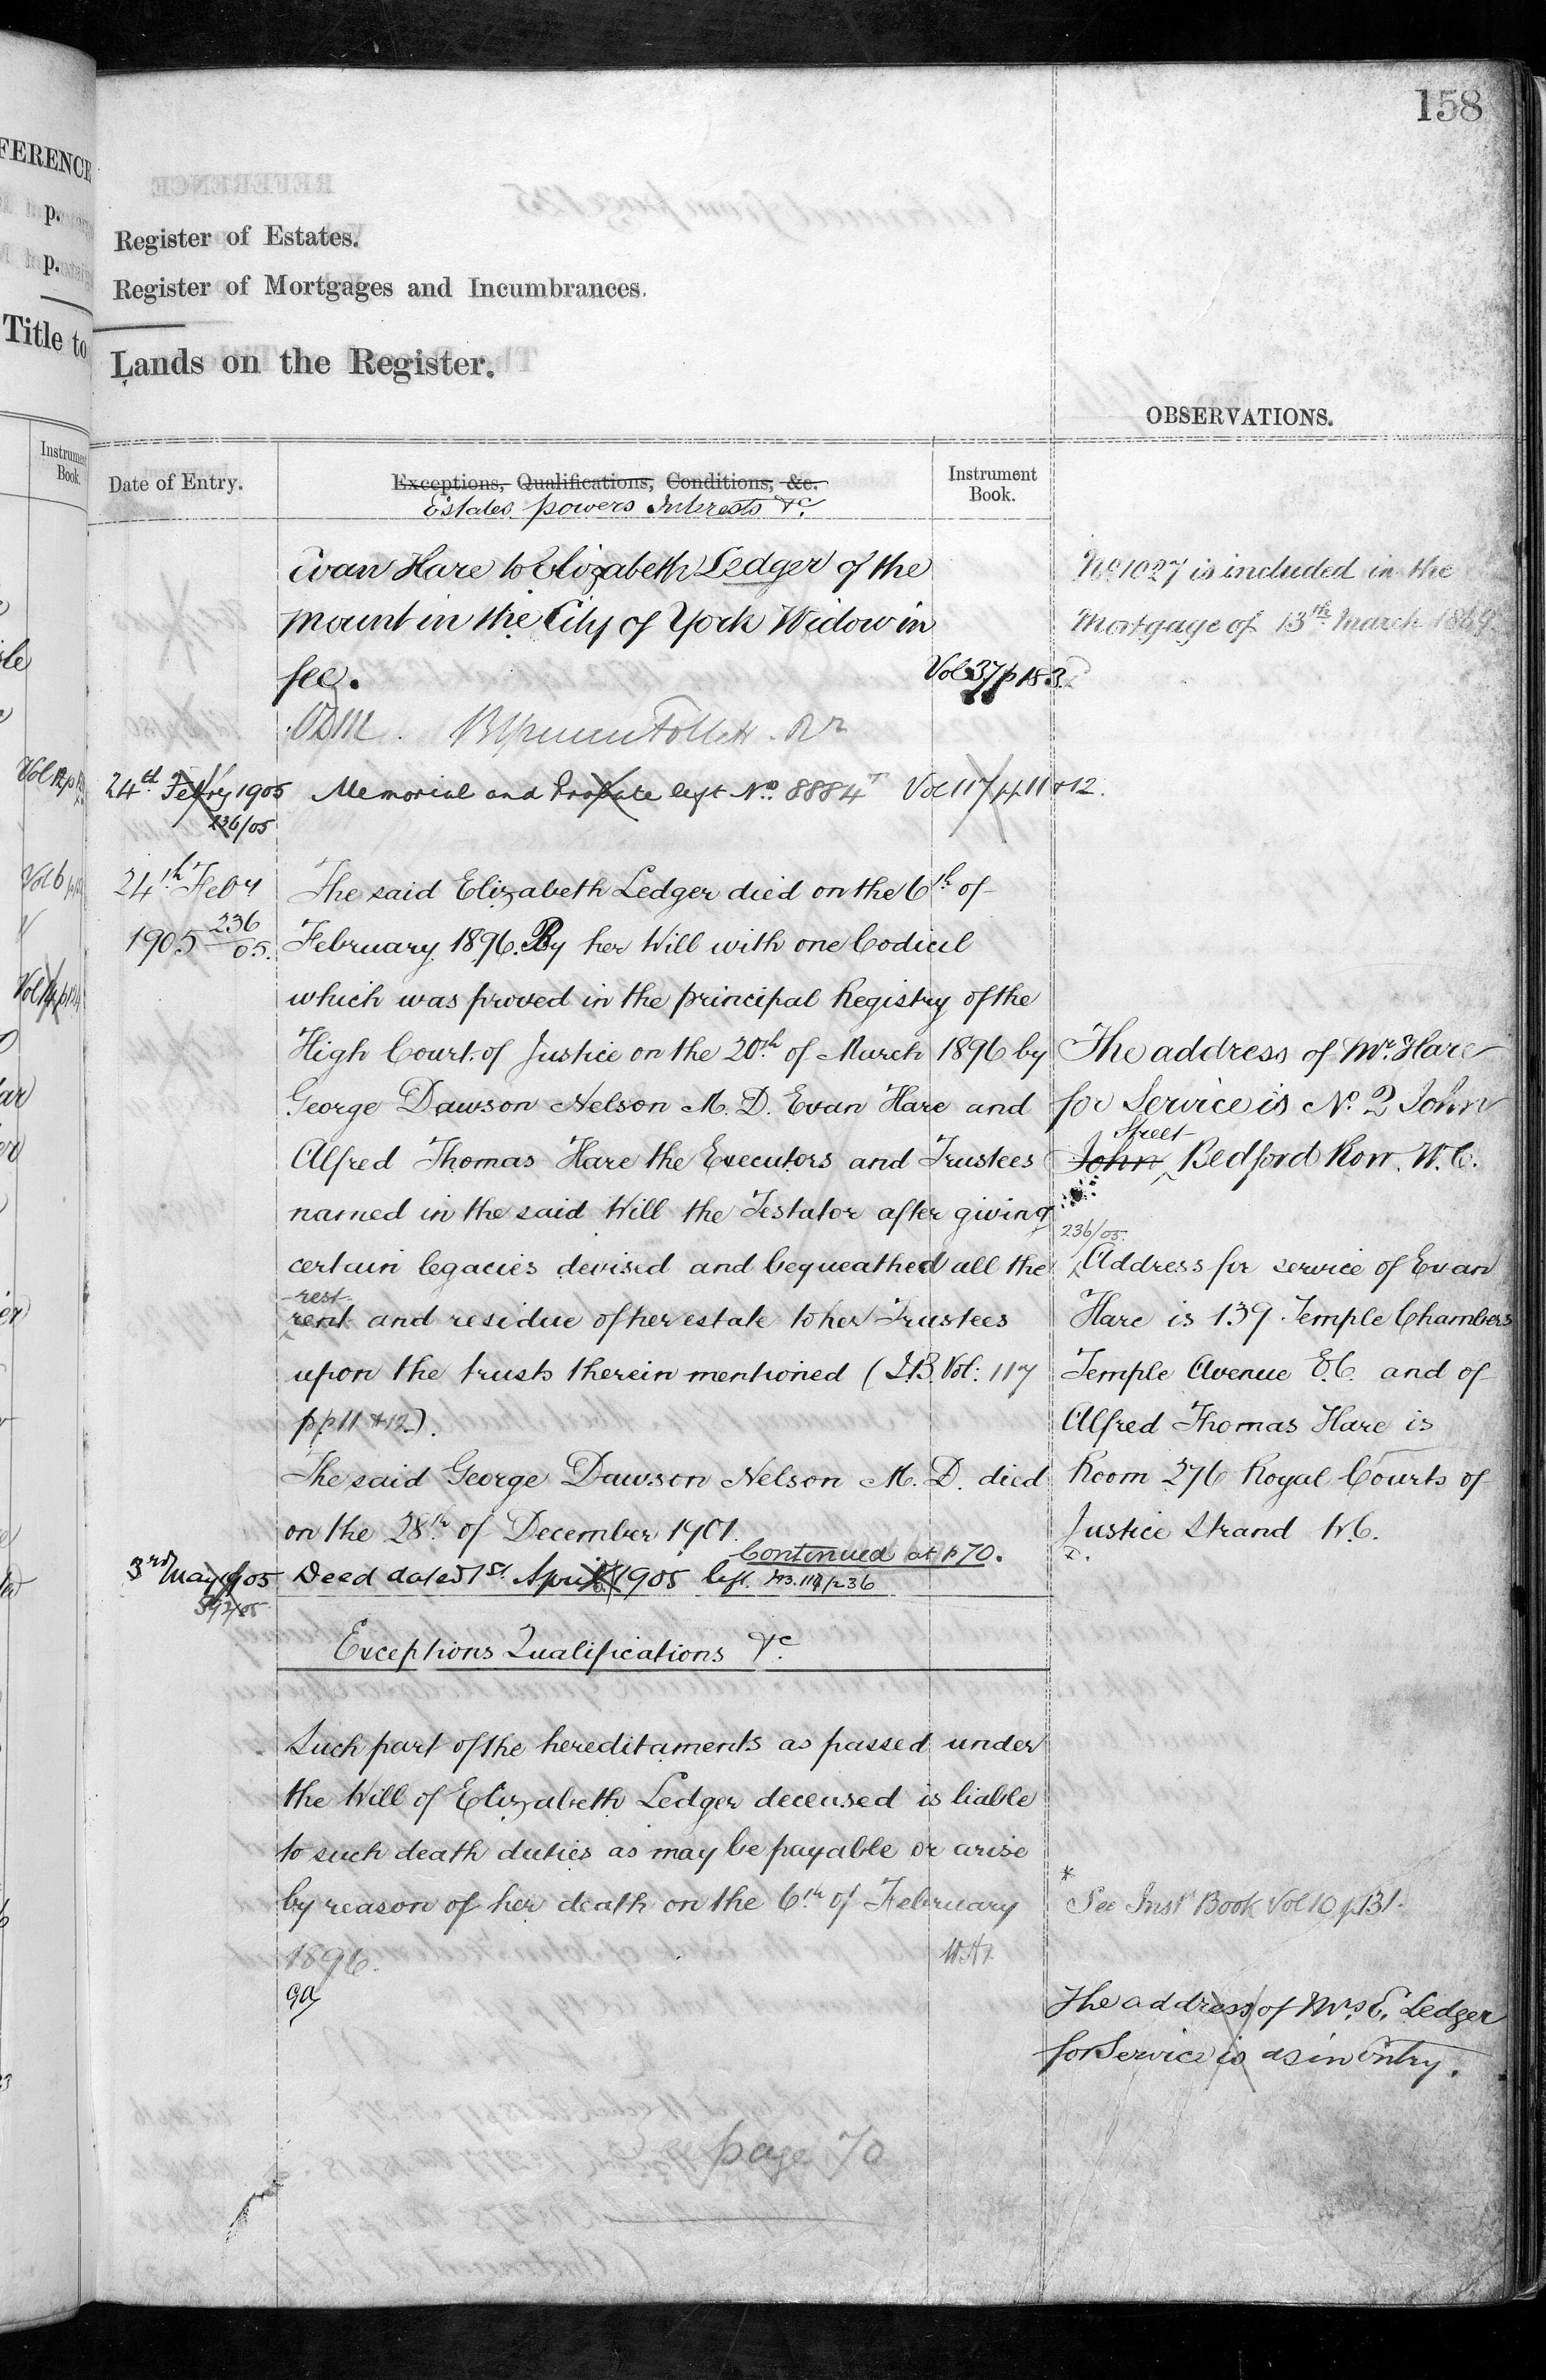 158
Register of Estates.
Register of Mortgages and Incumbrances.
Lands on the Register.
OBSERVATIONS.
Date of Entry.
Exceptions, Qualifications, Conditions, &c.
Estates powers Interests &c.
Instrument
Book.
Evan Hare to Elizabeth Ledger of the
Mount in the City of York Widow in
fee.
Vol 37 p 183.
24th Febry 1905
236/05
Memorial and Probate left No. 8884 Vol 117 pp 11 & 12.
24th Feby
1905 236/05.
The said Elizabeth Ledger died on the 6th of
February 1896. By her Will with one Codicil
which was proved in the principal Registry of the
High Court of Justice on the 20th of March 1896 by
George Dawson Nelson M. D. Evan Hare and
Alfred Thomas Hare the Executors and Trustees
named in the said Will the Testator after giving
certain legacies devised and bequeathed all the
rest
rent and residue of her estate to her Trustees
upon the trusts therein mentioned (I.B. Vol: 117
pp 11 & 12).
The said George Dawson Nelson M. D. died
on the 28th of December 1901.
Continued at p 70.
3rd May 1905
Deed dated 1st April 1905 left.
Exceptions Qualifications &c.
Such part of the hereditaments as passed under
the Will of Elizabeth Ledger deceased is liable
to such death duties as may be payable or arise
by reason of her death on the 6th of February
1896.
See page 70
No 1027 is included in the
Mortgage of 13th March 1869.
The address of Mr. Hare
for Service is No. 2 John
Street
John Bedford Row. W.C.
236/05.
Address for service of Evan
Hare is 139 Temple Chambers
Temple Avenue E.C. and of
Alfred Thomas Hare is
Room 276 Royal Courts of
Justice Strand W.C.
*
See Instr Book Vol 10 p 131.
The address of Mrs. E. Ledger
for Service is as in Entry.
FERENCE
p.
p.
Title to
Instrument
Book.